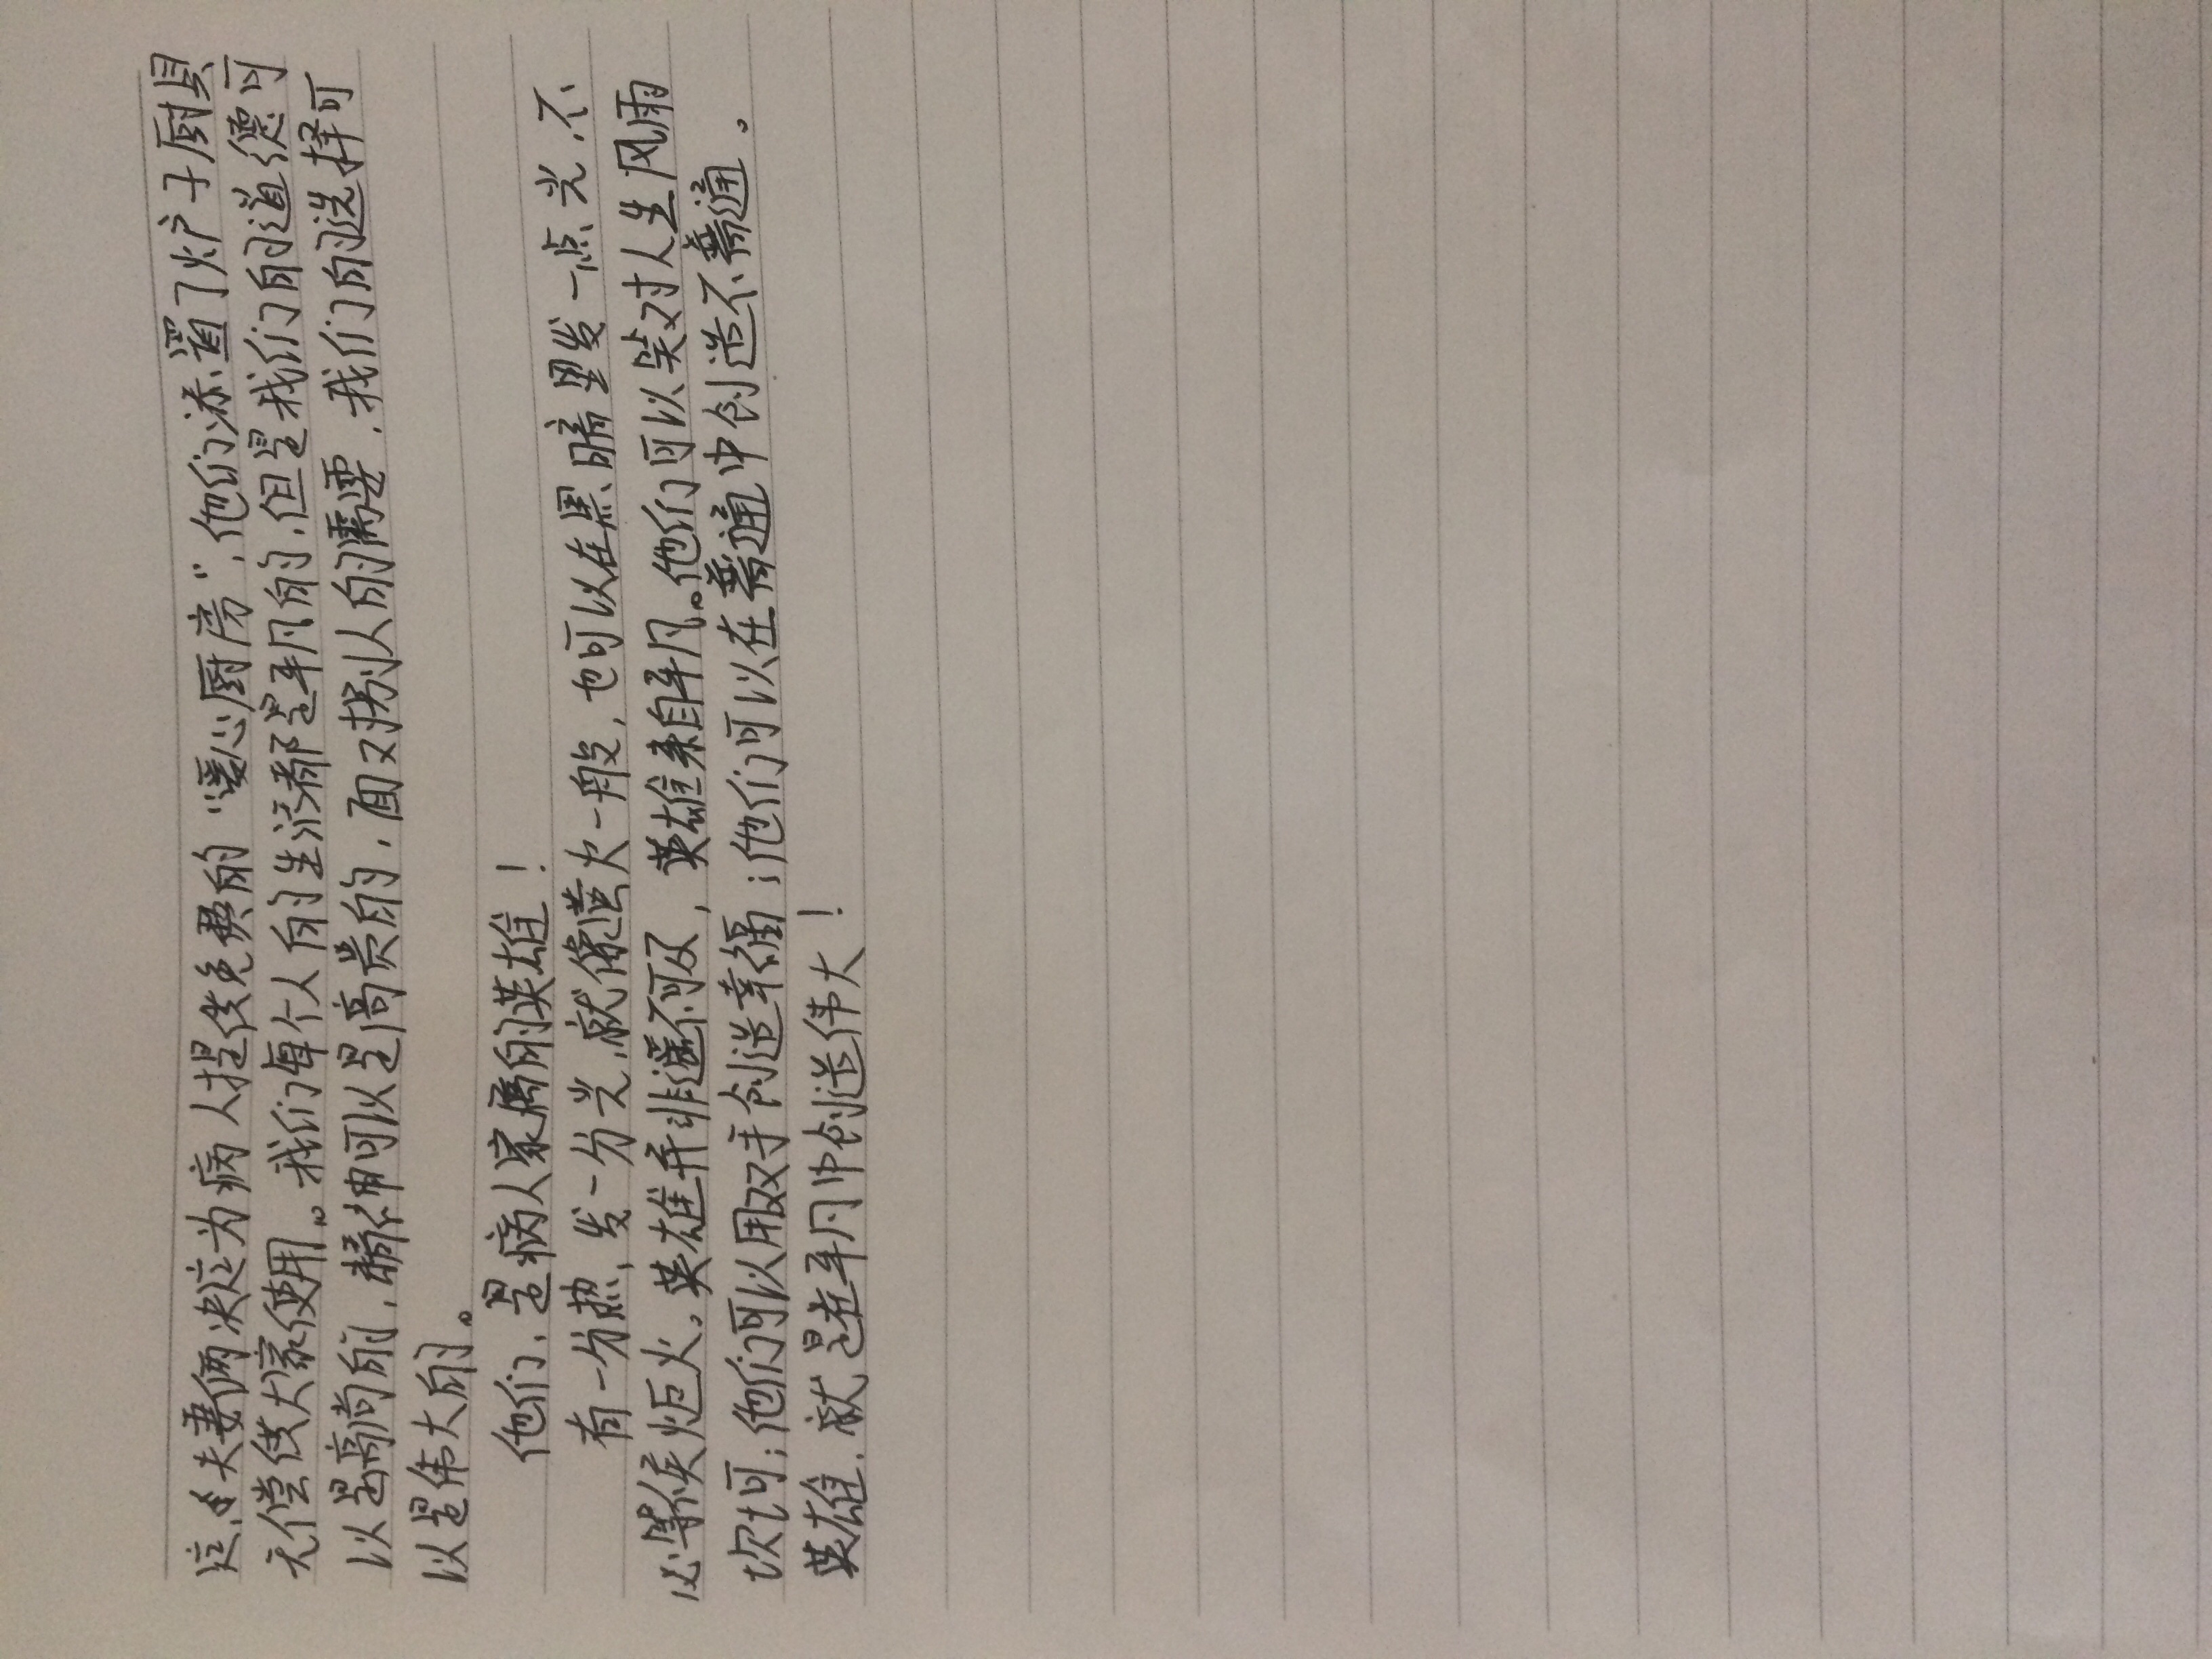 这对夫妻俩决定为病人提供免费的“暖心厨房”，他们添置了炉子厨具
无偿供大家使用。我们每个人的生活都是平凡的，但是我们的道德可
以是高尚的，精神可以是高贵的，面对别人的需要，我们的选择可
以是伟大的。
他们，是病人家属的英雄！
有一分热，发一分光，就像萤火一般，也可以在黑暗里发一点光，不
必等候炬火。英雄并非遥不可及，英雄来自平凡。他们可以笑对人生风雨
坎坷；他们可以用双手创造幸福；他们可以在普通中创造不普通。
英雄，就是在平凡中创造伟大！